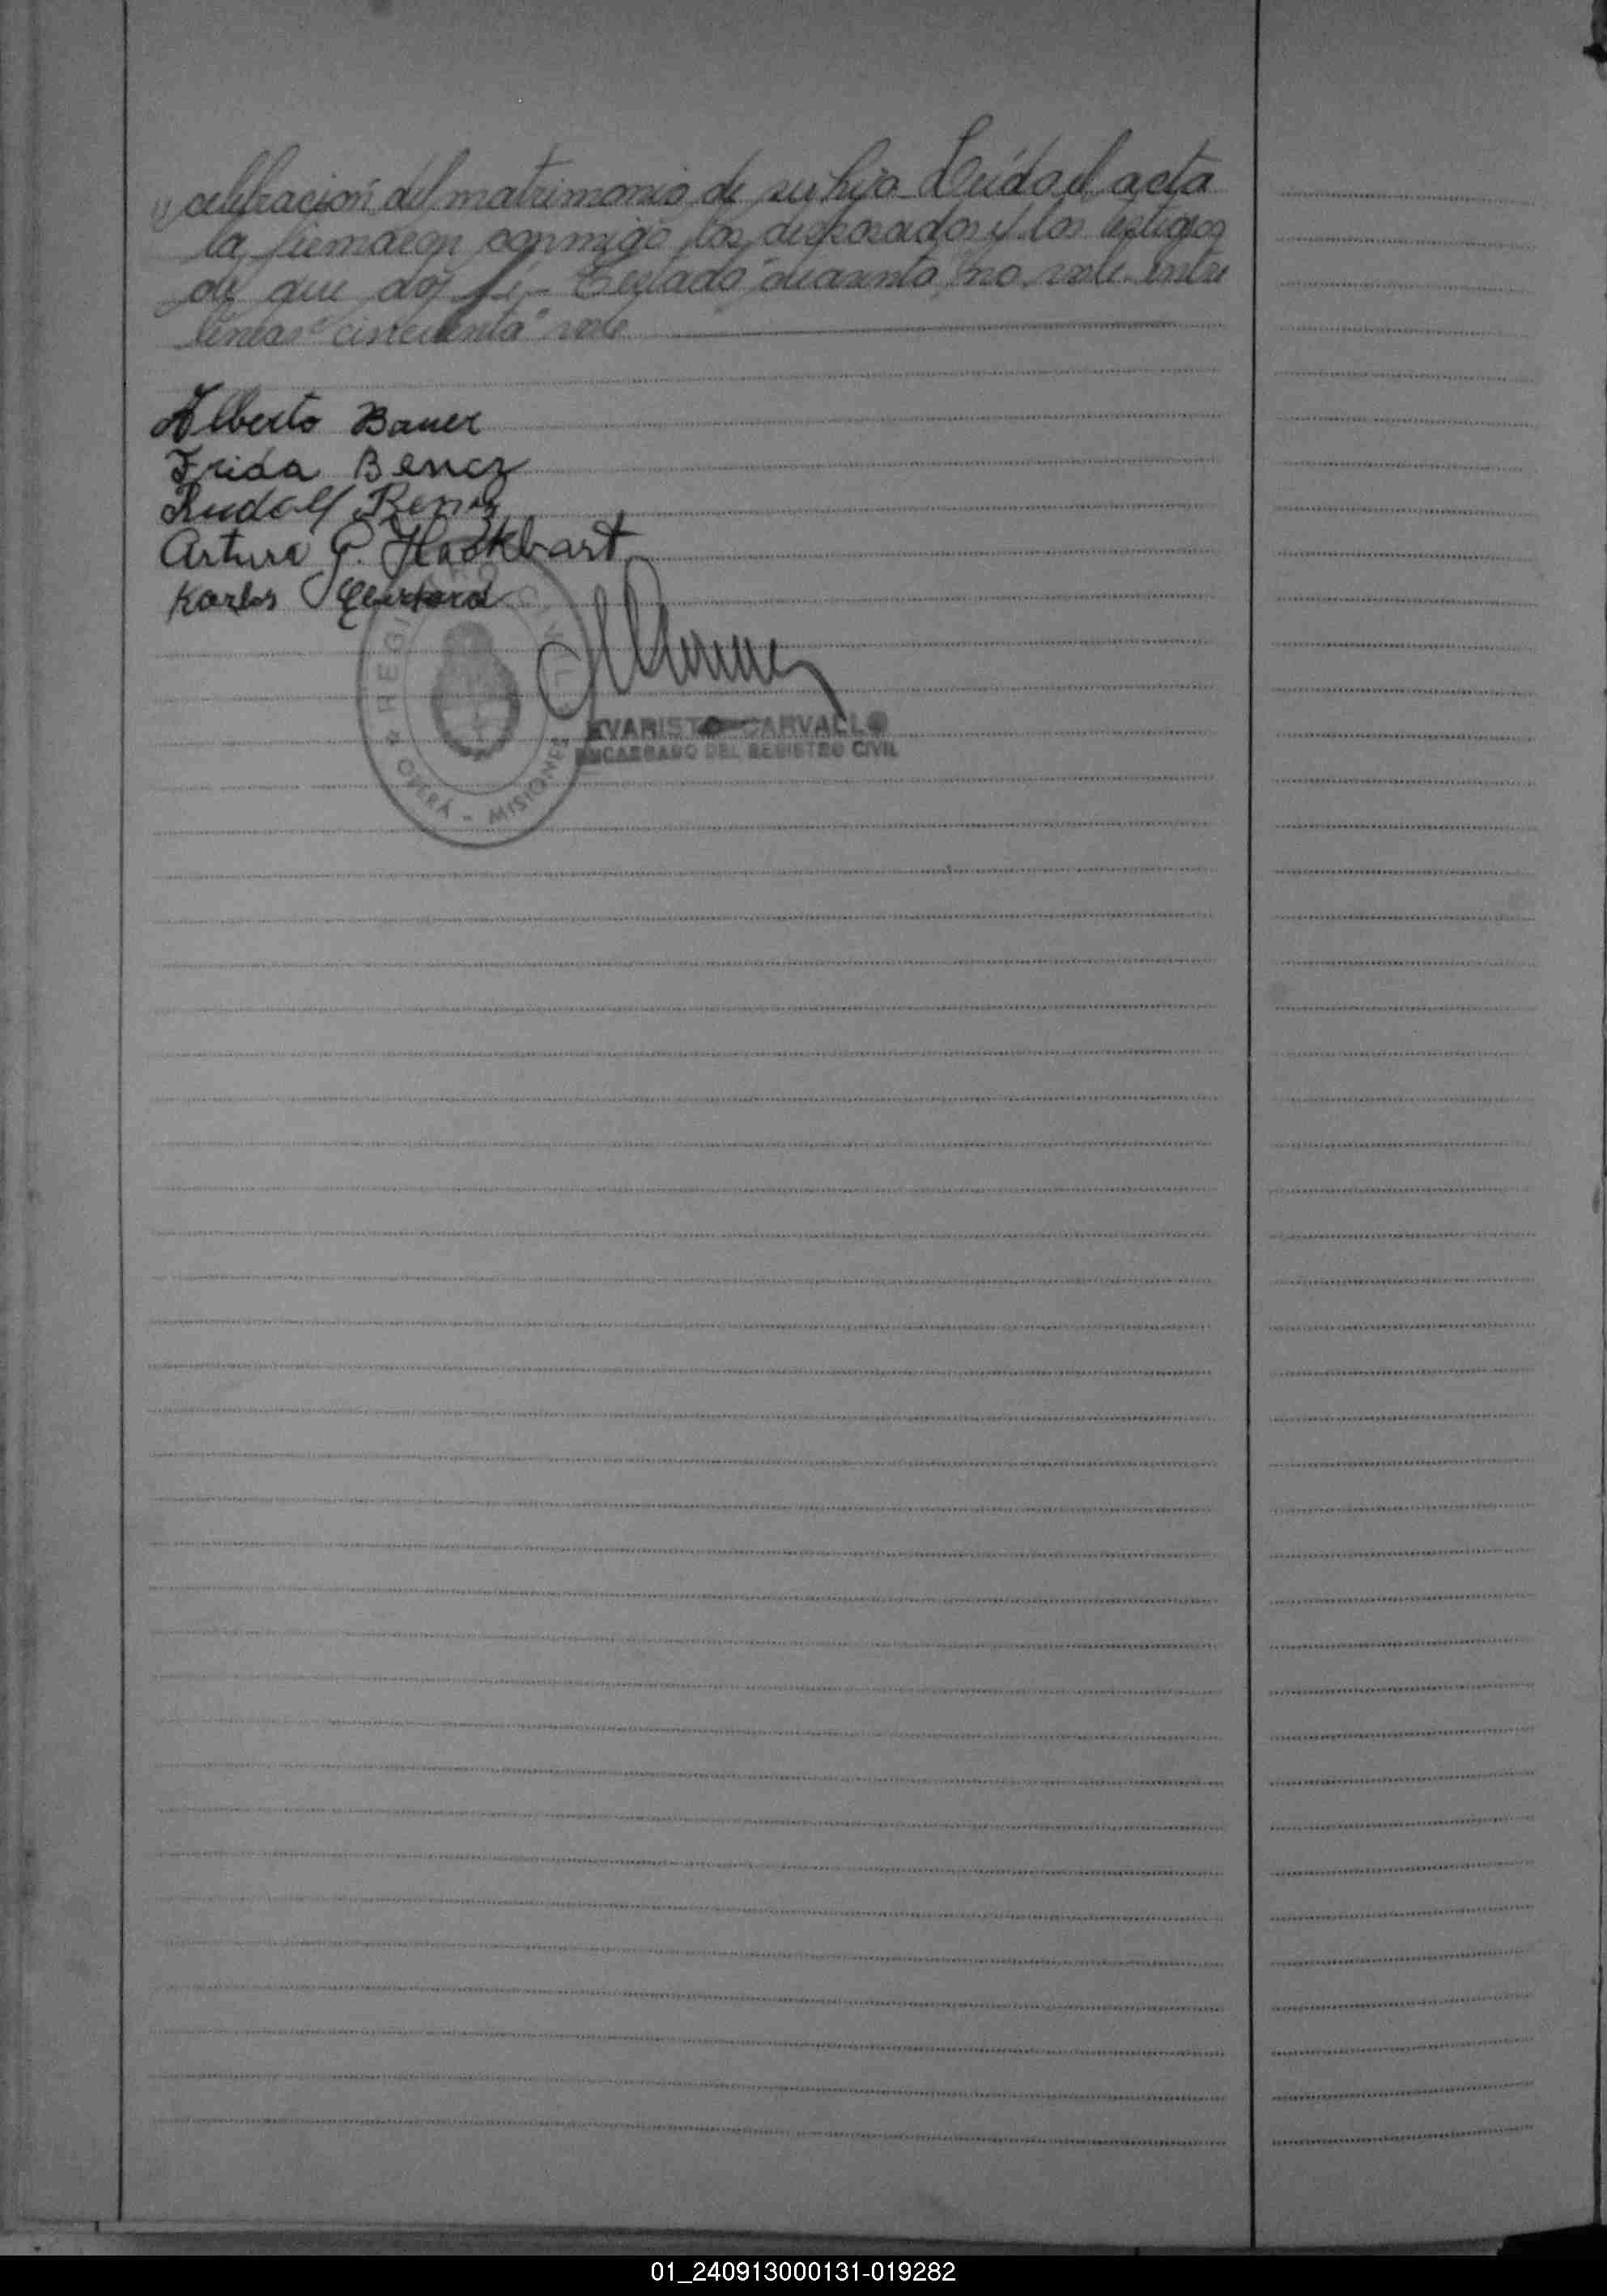 celebracion del matrimonio de su hija Leída el acta
la firmaron conmigo los desposados y los testigos
de que doy fé.- Testado "cuarenta" no vale entre
lineas "cincuenta" vale
Alberto Bauer
Frida Bencz
Rudolf
Arturo G. Hackbart
Karlos
REGISTRO CIVIL
OBERÁ - MISIONES
EVARISTO CARVALLO
ENCARGADO DEL REGISTRO CIVIL
01_240913000131-019282